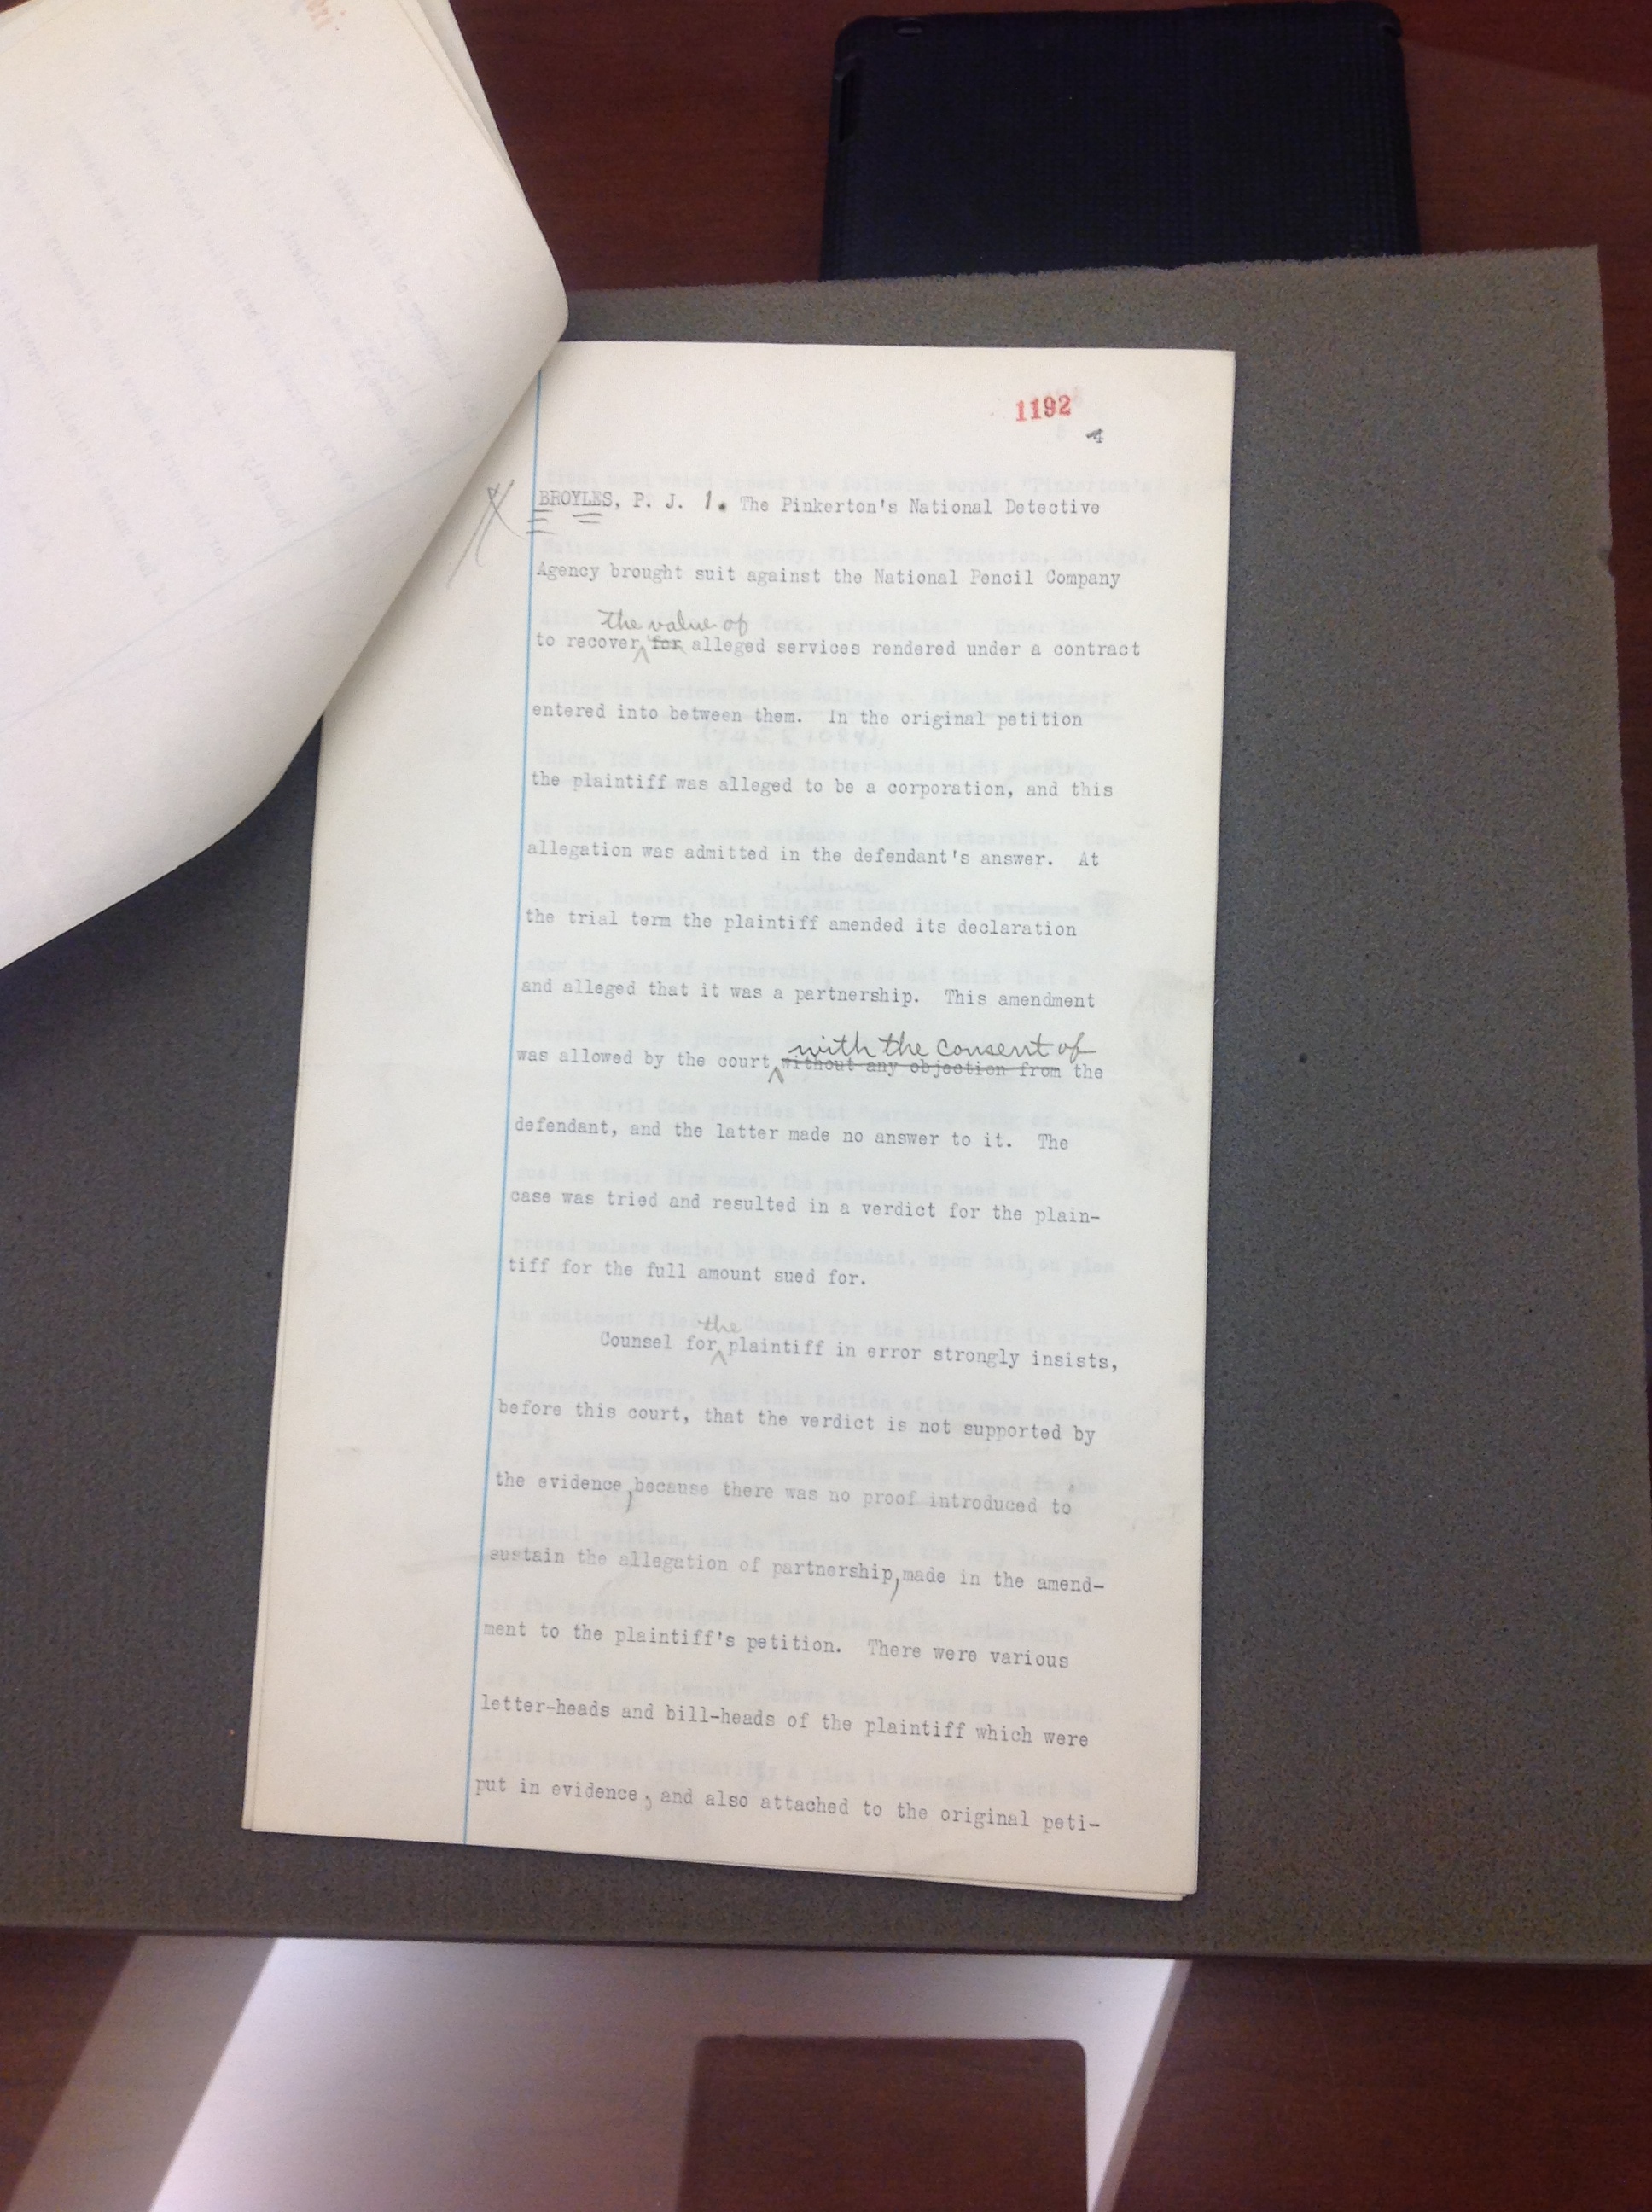 1192
4
BROYLES, P. J. 1. The Pinkerton's National Detective
Agency brought suit against the National Pencil Company
the value of
to recover ^ for alleged services rendered under a contract
entered into between them. In the original petition
the plaintiff was alleged to be a corporation, and this
allegation was admitted in the defendant's answer. At
the trial term the plaintiff amended its declaration
and alleged that it was a partnership. This amendment
with the consent of
was allowed by the court ^ without any objection from the
defendant, and the latter made no answer to it. The
case was tried and resulted in a verdict for the plain-
tiff for the full amount sued for.
the
Counsel for ^ plaintiff in error strongly insists,
before this court, that the verdict is not supported by
the evidence, because there was no proof introduced to
sustain the allegation of partnership, made in the amend-
ment to the plaintiff's petition. There were various
letter-heads and bill-heads of the plaintiff which were
put in evidence, and also attached to the original peti-